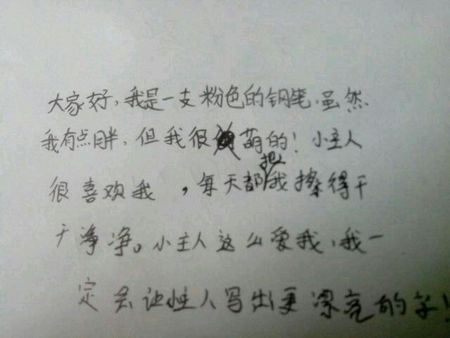 大家好,我是一支粉色的钢笔.虽然
我有点胖,但我很萌的!小主人
很喜欢我,每天都把我擦得干
干净净。小主人这么爱我,我一
定会让她写出更漂亮的字!